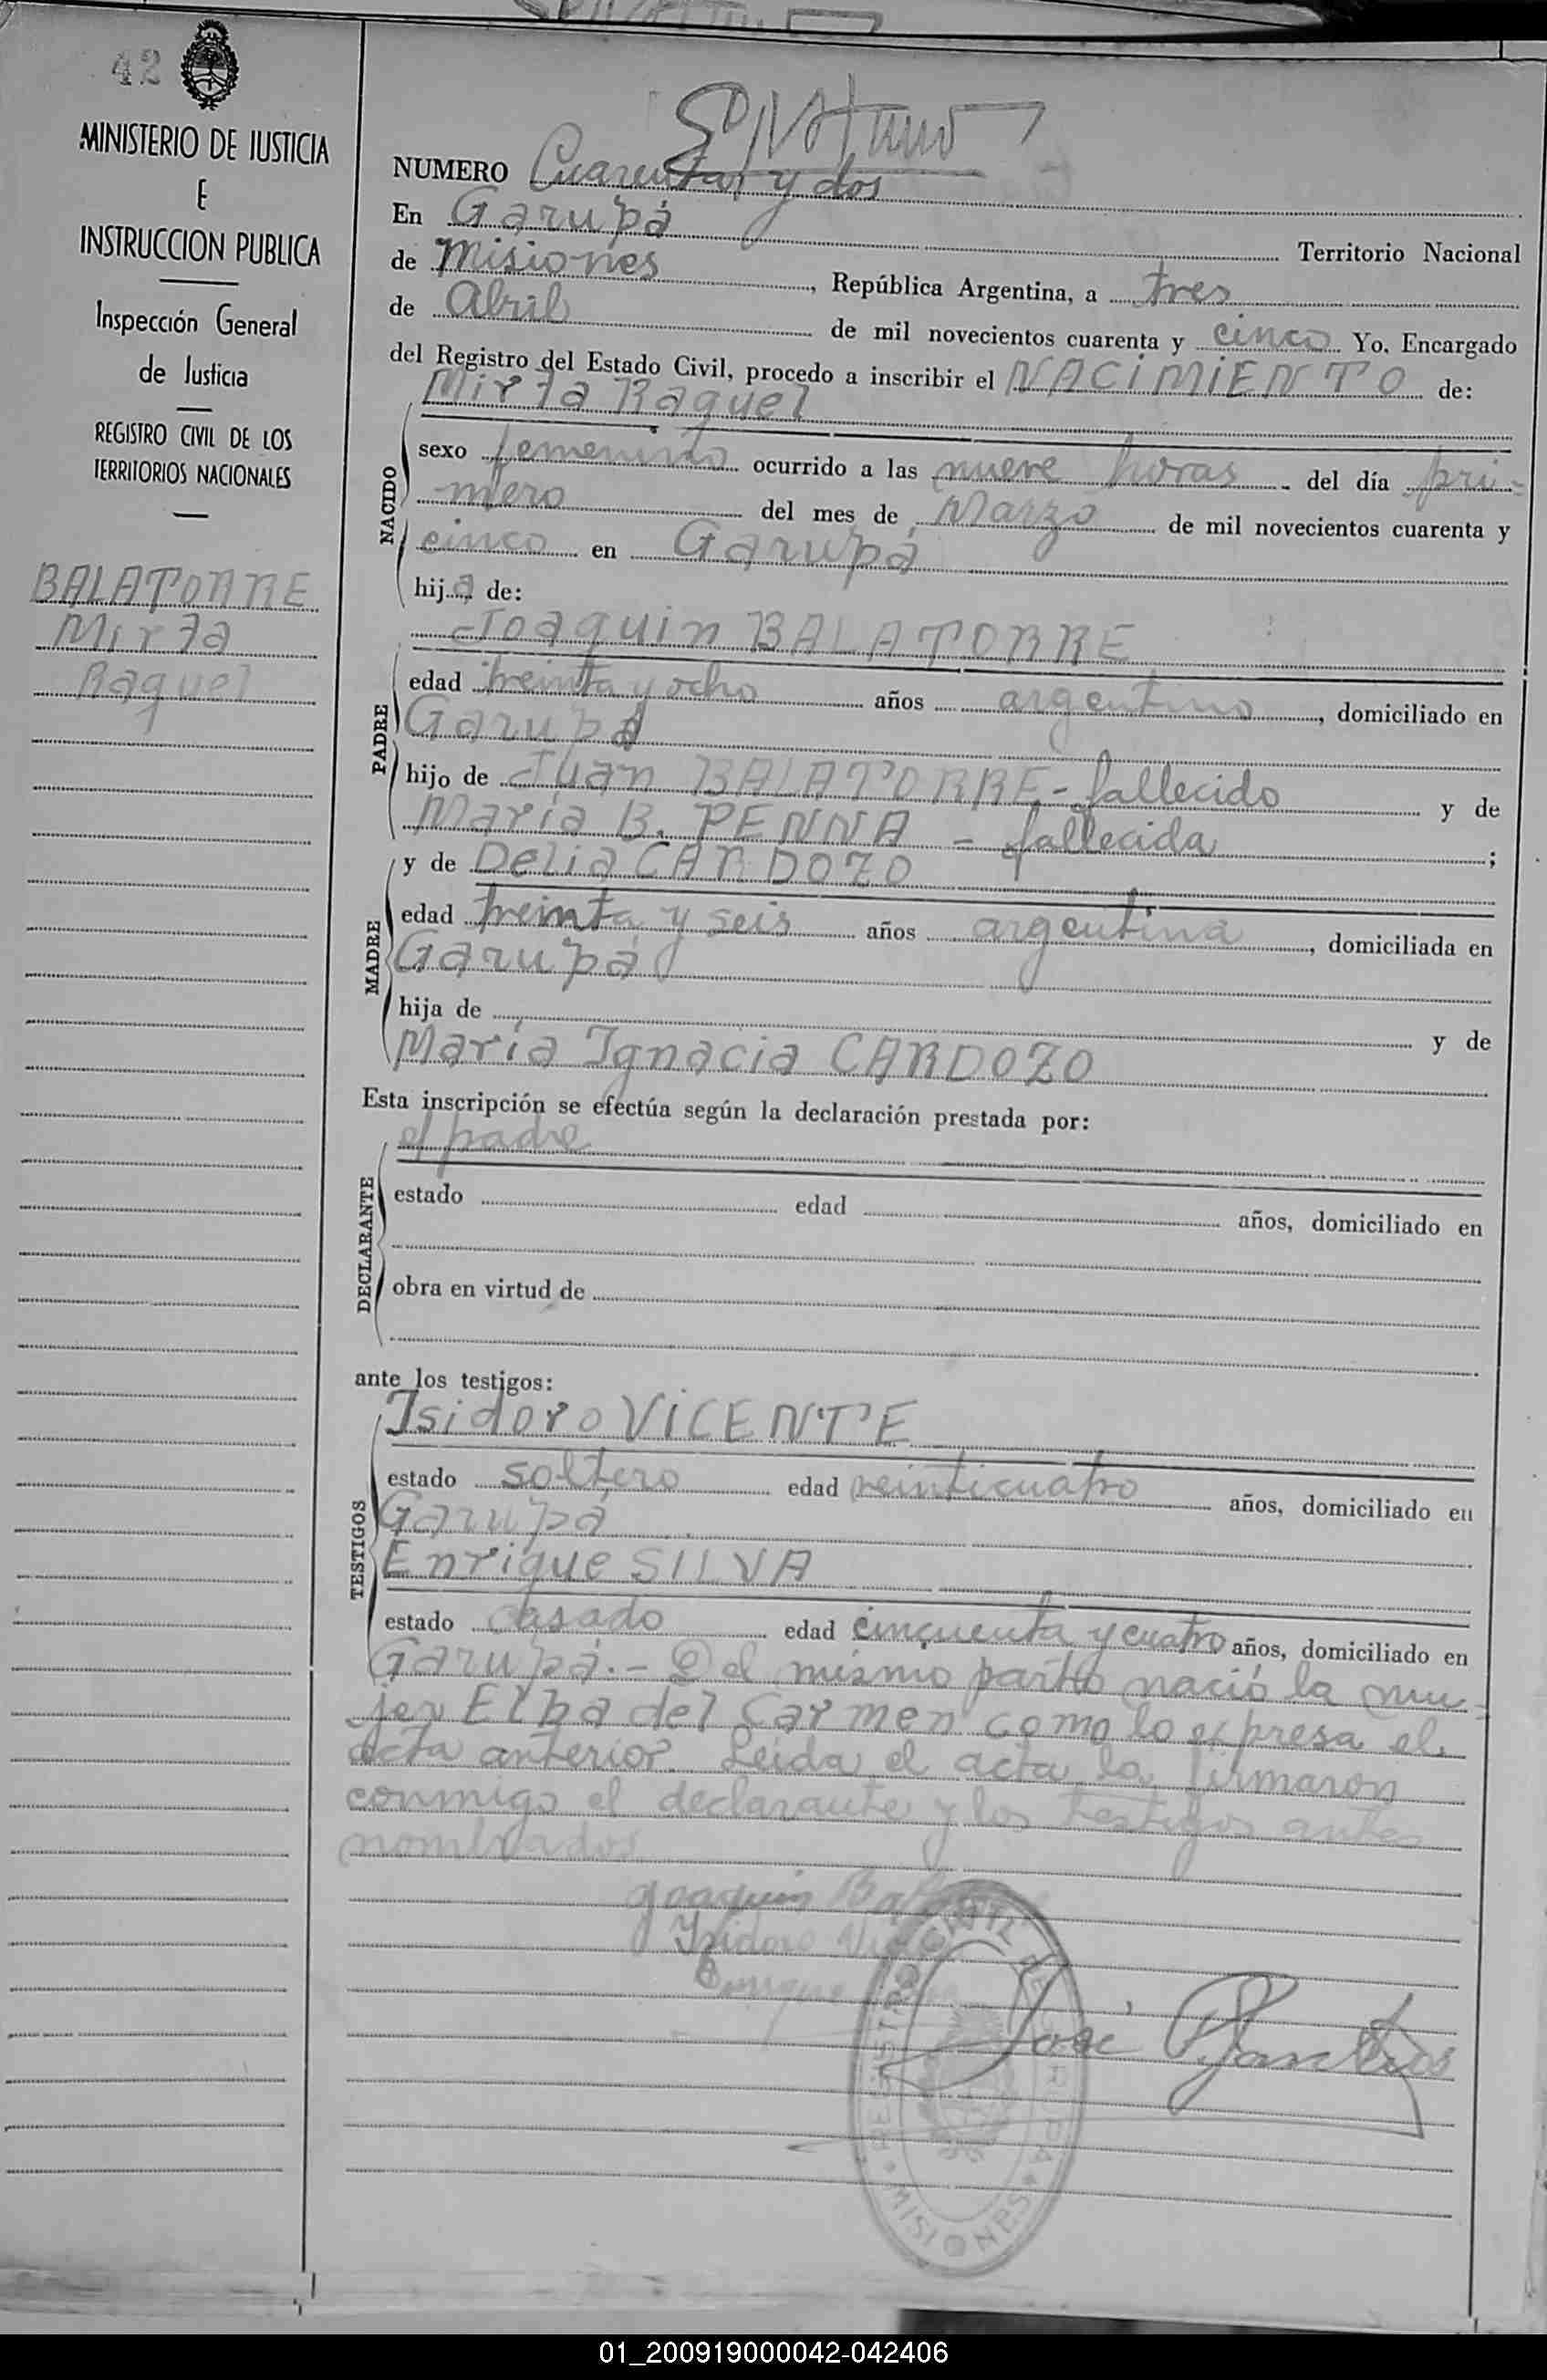 42
MINISTERIO DE JUSTICIA
E
INSTRUCCION PUBLICA
Inspección General
de Justicia
REGISTRO CIVIL DE LOS
TERRITORIOS NACIONALES
BALATORRE
Mirta
Raquel
NUMERO Cuarenta y dos
En Garupá Territorio Nacional
de Misiones, República Argentina, a tres
de Abril de mil novecientos cuarenta y cinco Yo, Encargado
del Registro del Estado Civil, procedo a inscribir el NACIMIENTO de:
Mirta Raquel
NACIDO
sexo femenino ocurrido a las nueve horas del día pri-
mero del mes de Marzo de mil novecientos cuarenta y
cinco en Garupá
hija de:
Joaquin BALATORRE
PADRE
edad treinta y ocho años argentino, domiciliado en
Garupá
hijo de Juan BALATORRE - fallecido y de
María B. PENNA - fallecida;
y de Delia CARDOZO
MADRE
edad treinta y seis años argentina, domiciliada en
Garupá
hija de y de
María Ignacia CARDOZO
Esta inscripción se efectúa según la declaración prestada por:
el padre
DECLARANTE
estado edad años, domiciliado en
obra en virtud de
ante los testigos:
Isidoro VICENTE
TESTIGOS
estado soltero edad veinticuatro años, domiciliado en
Garupá
Enrique SILVA
estado casado edad cincuenta y cuatro años, domiciliado en
Garupá.- Del mismo parto nació la mu-
jer Elba del Carmen como lo expresa el
acta anterior. Leida el acta la firmaron
conmigo el declarante y los testigos antes
nombrados
Joaquin
Isidoro
Enrique
José
MISIONES
01_200919000042-042406